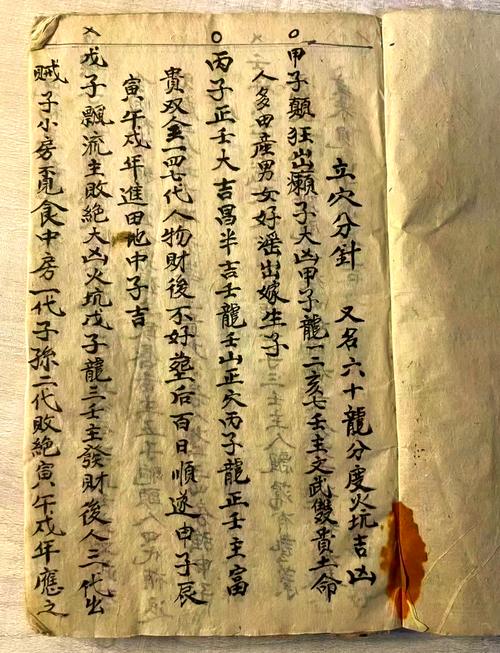 立穴分針 又名六十龍分度火坑吉凶
○甲子顛狂出癩子大凶甲子龍一二亥七壬主文武雙貴土命
人多田産男女好滛出嫁生子
○丙子正壬大吉昌半吉壬龍壬山正穴丙子龍正壬主富
貴双全一四七代人物財後不好塟后百日順遂申子辰
寅午戌年進田地中子吉
×戊子飄流主敗絶大凶火坑戊子龍三壬主發財後人二代出
賊子小房覔食中房一代子孫二代敗絶寅午戌年應之